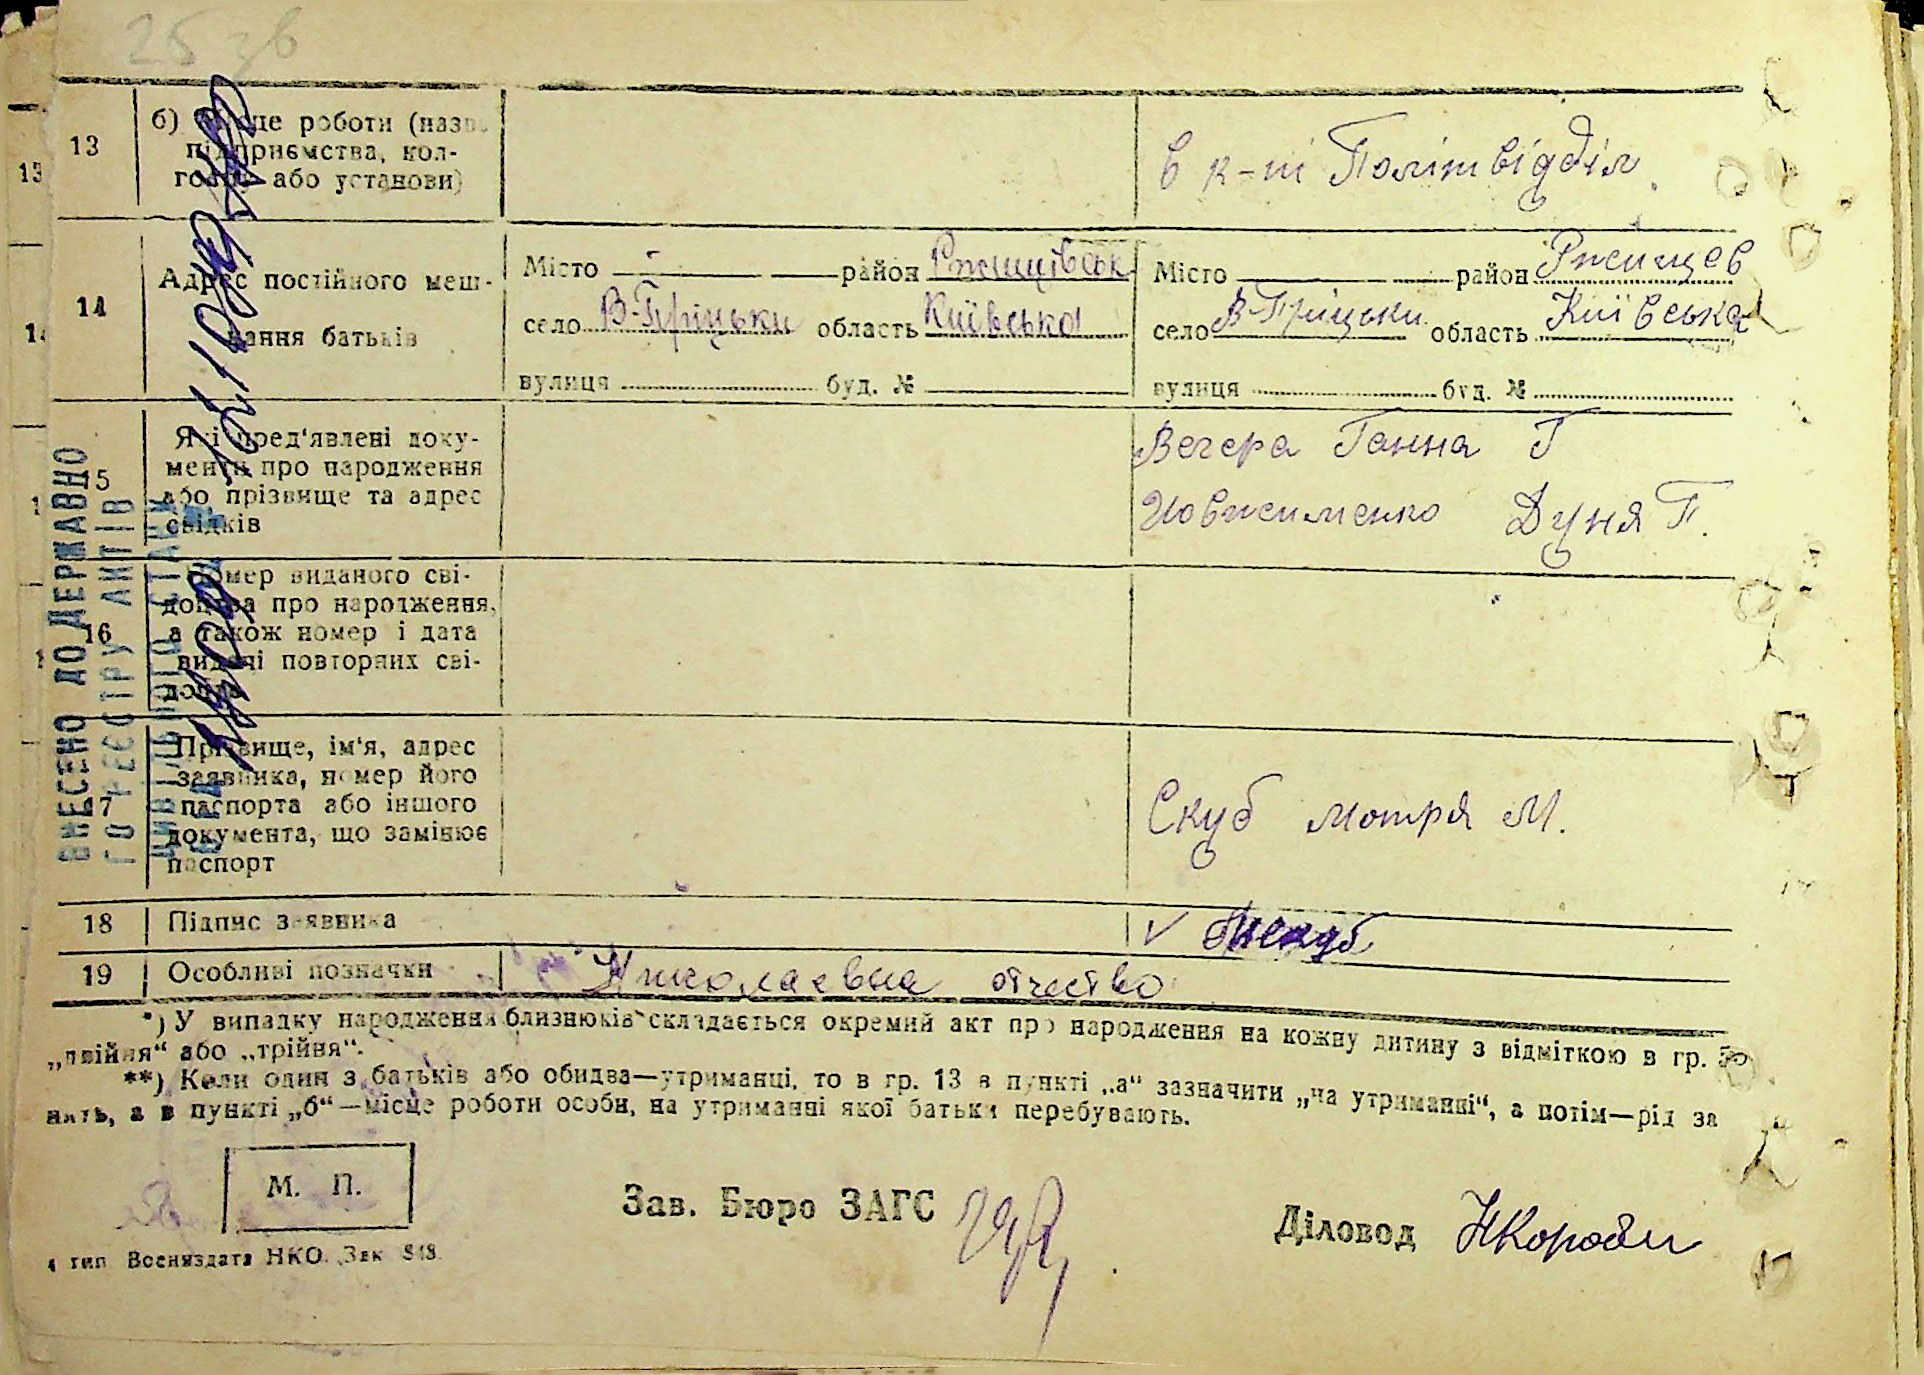 25 зв
13
б) Місце роботи (назва
підприємства, кол-
госпу або установи)
в к-ті Політвідділ
14
Адрес постійного меш-
кання батьків
Місто район Ржищівськ
село В-Пріцьки область Київська
вулиця буд. №
Місто район Ржищев
село В-Пріцьки область Київська
вулиця буд. №
15
Які пред'явлені доку-
менти про народження
або прізвище та адрес
свідків
Вечера Ганна Г
Дуня П.
16
Номер виданого сві-
доцтва про народження,
а також номер і дата
видачі повторних сві-
доцтв
17
Прізвище, ім'я, адрес
заявника, номер його
паспорта або іншого
документа, що замінює
паспорт
Скуб Мотря М.
18
Підпис заявника
19
Особливі позначки
Николаевна отчество
*) У випадку народження близнюків складається окремий акт про народження на кожну дитину з відміткою в гр. 5
„двійня“ або „трійня“.
**) Коли один з батьків або обидва—утриманці, то в гр. 13 в пункті „а“ зазначити „на утриманні“, а потім—рід за
нять, а в пункті „б“—місце роботи особи, на утриманні якої батьки перебувають.
М. П.
Зав. Бюро ЗАГС
Діловод
4 тип Воениздата НКО. Зак 848.
ВНЕСЕНО ДО ДЕРЖАВНО
ГО РЕЄСТРУ АКТІВ
ЦИВІЛЬНОГО СТАНУ